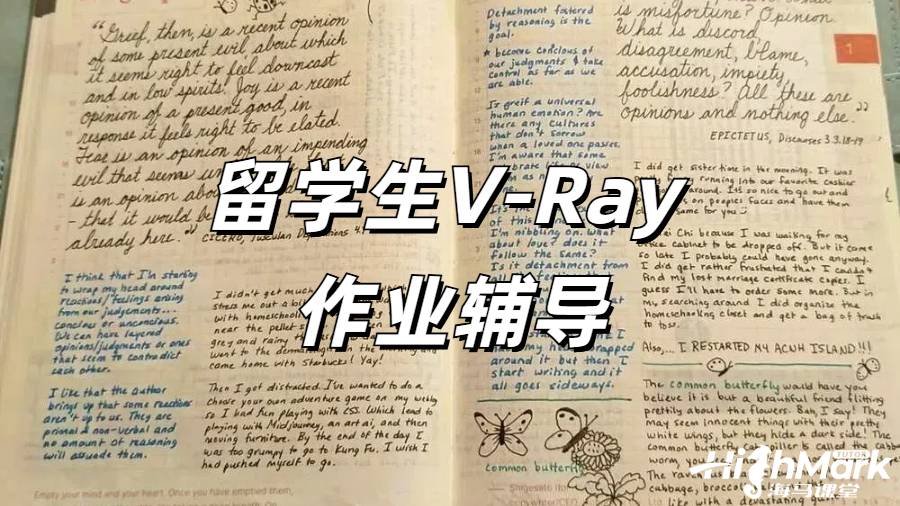 "Grief, then, is a recent opinion
of some present evil, about which
it seems right to feel downcast
and in low spirits. Joy is a recent
opinion of a present good, in
response it feels right to be elated.
Fear is an opinion of an impending
evil that seems
is an opinion
- that it would be
already here."
CICERO, Tusculan 4.
I think that I'm starting
to wrap my head around
reactions/feelings arising
from our judgements...
concious or unconcious.
We can have layered
opinions/judgments or ones
that seem to contradict
each other.
I like that the author
brings up that some reactions
aren't up to us. They are
primal & non-verbal and
no amount of reasoning
will assuade them.
I didn't get much
stress me out a bit
with homeschool
near the pellet
grey and rainy
went to the
came home with Starbucks! Yay!
Then I got distracted. I've wanted to do a
choose your own adventure game on my webly
so I had fun playing with CSS. Which lead to
playing with Midjourney, an art ai, and then
moving furniture. By the end of the day I
was too grumpy to go to Kung Fu. I wish I
had pushed myself to go.
Empty your mind and your heart. Once you have emptied them,
Detachment fostered
by reasoning is the
goal.
* become concious of
our judgments & take
control as far as we
are able.
Is greif a universal
human emotion? Are
there any cultures
that don't sorrow
when a loved one passes.
I'm aware that some
of this
I'm nibbling on. What
about love? does it
follow the same?
Is it detachment from
my head wrapped
around it but then I
start writing and it
all goes sideways.
common butterfly
Shigesato Ito,
is misfortune? Opinion.
What is discord,
disagreement, blame,
accusation, impiety,
foolishness? All these are
opinions and nothing else."
EPICTETUS, Discourses 3.3.18-19
1
I did get sister time in the morning. It was
running into our favorite cashier
around. It's so nice to go out and
on people's faces and have them
same for you
Chi because I was waiting for my
office cabinet to be dropped off. But it came
so late I probably could have gone anyway.
I did get rather frustrated that I couldn't
find my lost marriage certificate copies. I
guess I'll have to order some more. But in
my searching around I did organize the
homeschooling closet and get a bag of trash
to toss.
Also,... I RESTARTED MY ACNH ISLAND!!!
The common butterfly would have you
believe it is but a beautiful friend flitting
prettily about the flowers. Bah, I say! They
may seem innocent things with their pretty
white wings, but they hide a dark side! The
common butterfly
worm, you
The
cabbage,
like with a devastating
留学生V-Ray
作业辅导
HighMark
TUTOR
海马课堂